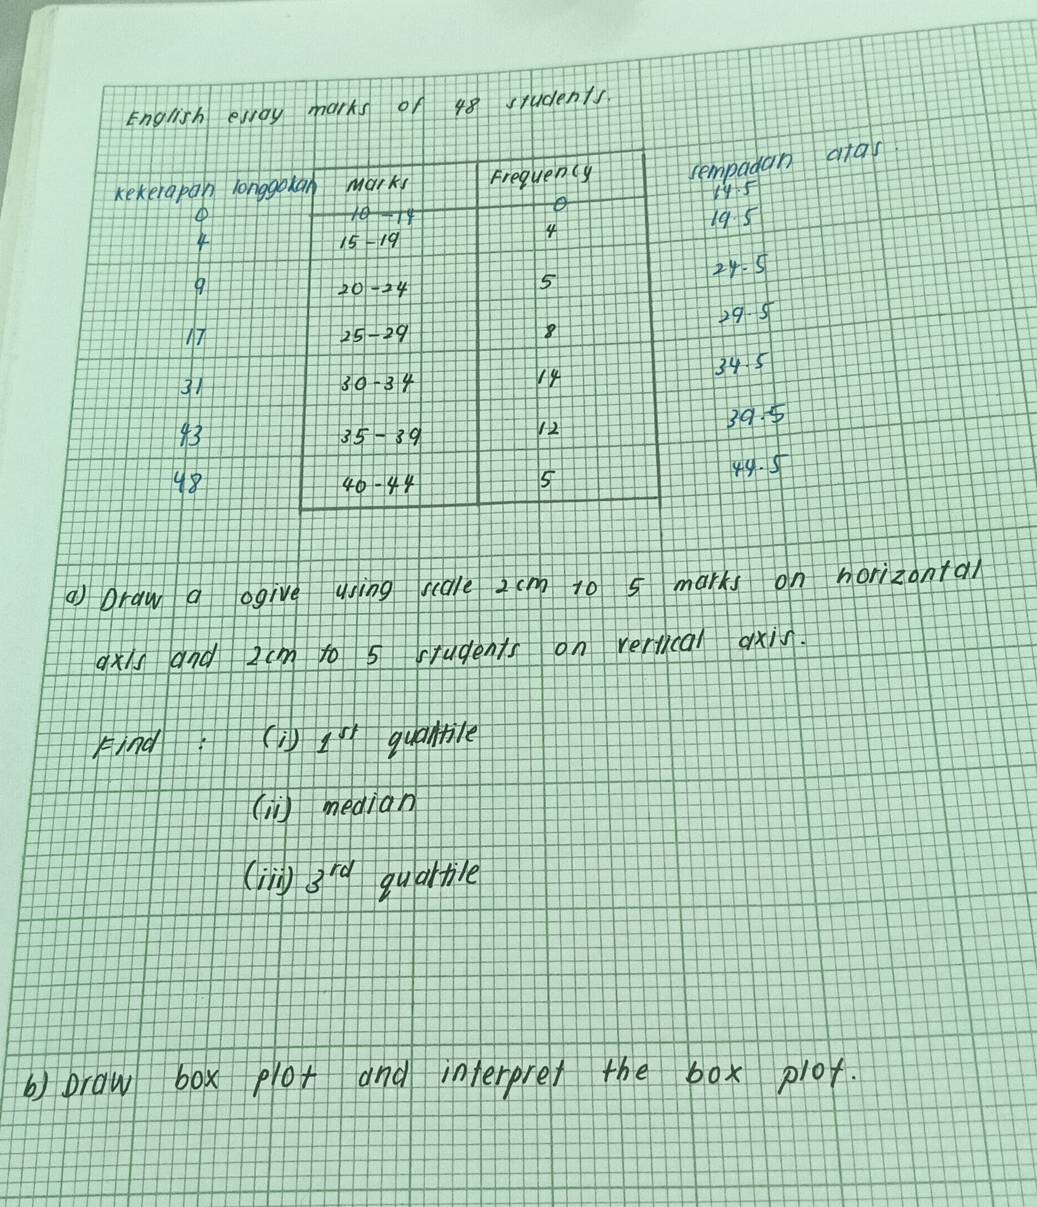 English essay marks of 48 students.
kekerapan longgokan Marks Frequency sempadan atas
0 10-14 0 14.5
4 15-19 4 19.5
9 20-24 5 24.5
17 25-29 8 29.5
31 30-34 14 34.5
43 35-39 12 39.5
48 40-44 5 44.5
a) Draw a ogive using scale 2cm to 5 marks on horizontal
axis and 2cm to 5 students on vertical axis.
Find : (i) 1st quartile
(ii) median
(iii) 3rd quartile
b) Draw box plot and interpret the box plot.